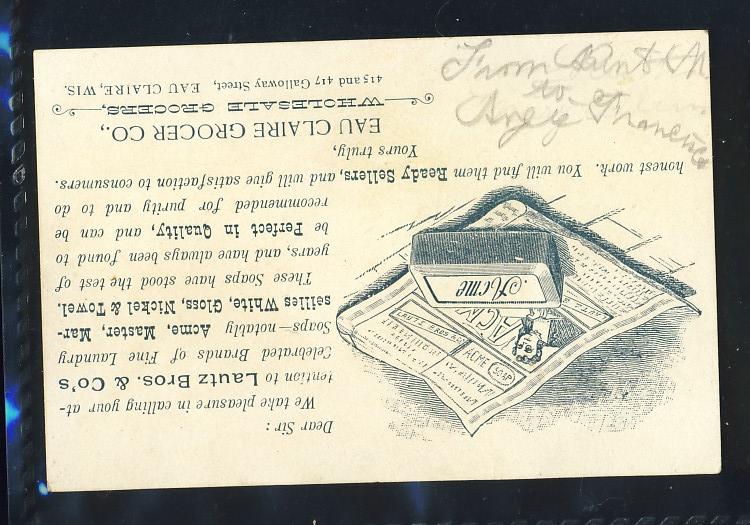 Dear Sir:
We take pleasure in calling your at-
tention to Lautz Bros. & Co's
Celebrated Brands of Fine Laundry
Soaps—notably Acme, Master, Mar-
seilles White, Gloss, Nickel & Towel.
These Soaps have stood the test of
years, and have always been found to
be Perfect in Quality, and can be
recommended for purity and to do
honest work. You will find them Ready Sellers, and will give satisfaction to consumers.
Yours truly,
EAU CLAIRE GROCER CO.,
WHOLESALE GROCERS,
415 and 417 Galloway Street, EAU CLAIRE, WIS.
Acme
LAUTZ BROS
ACME SOAP
LAUTZ
From Aunt M
to
Angie Francisco